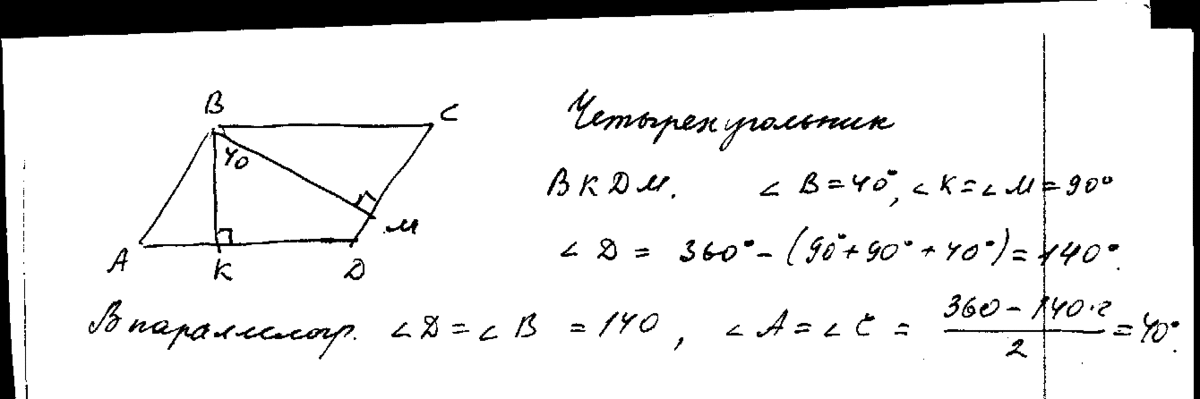 B
C
40
M
A
K
D
Четырехугольник
BKDM. ∠B=40°, ∠K=∠M=90°
∠D = 360° - (90°+90°+40°)=140°.
В параллелогр. ∠D=∠B =140, ∠A=∠C = (360-140·2)/2 =40°.